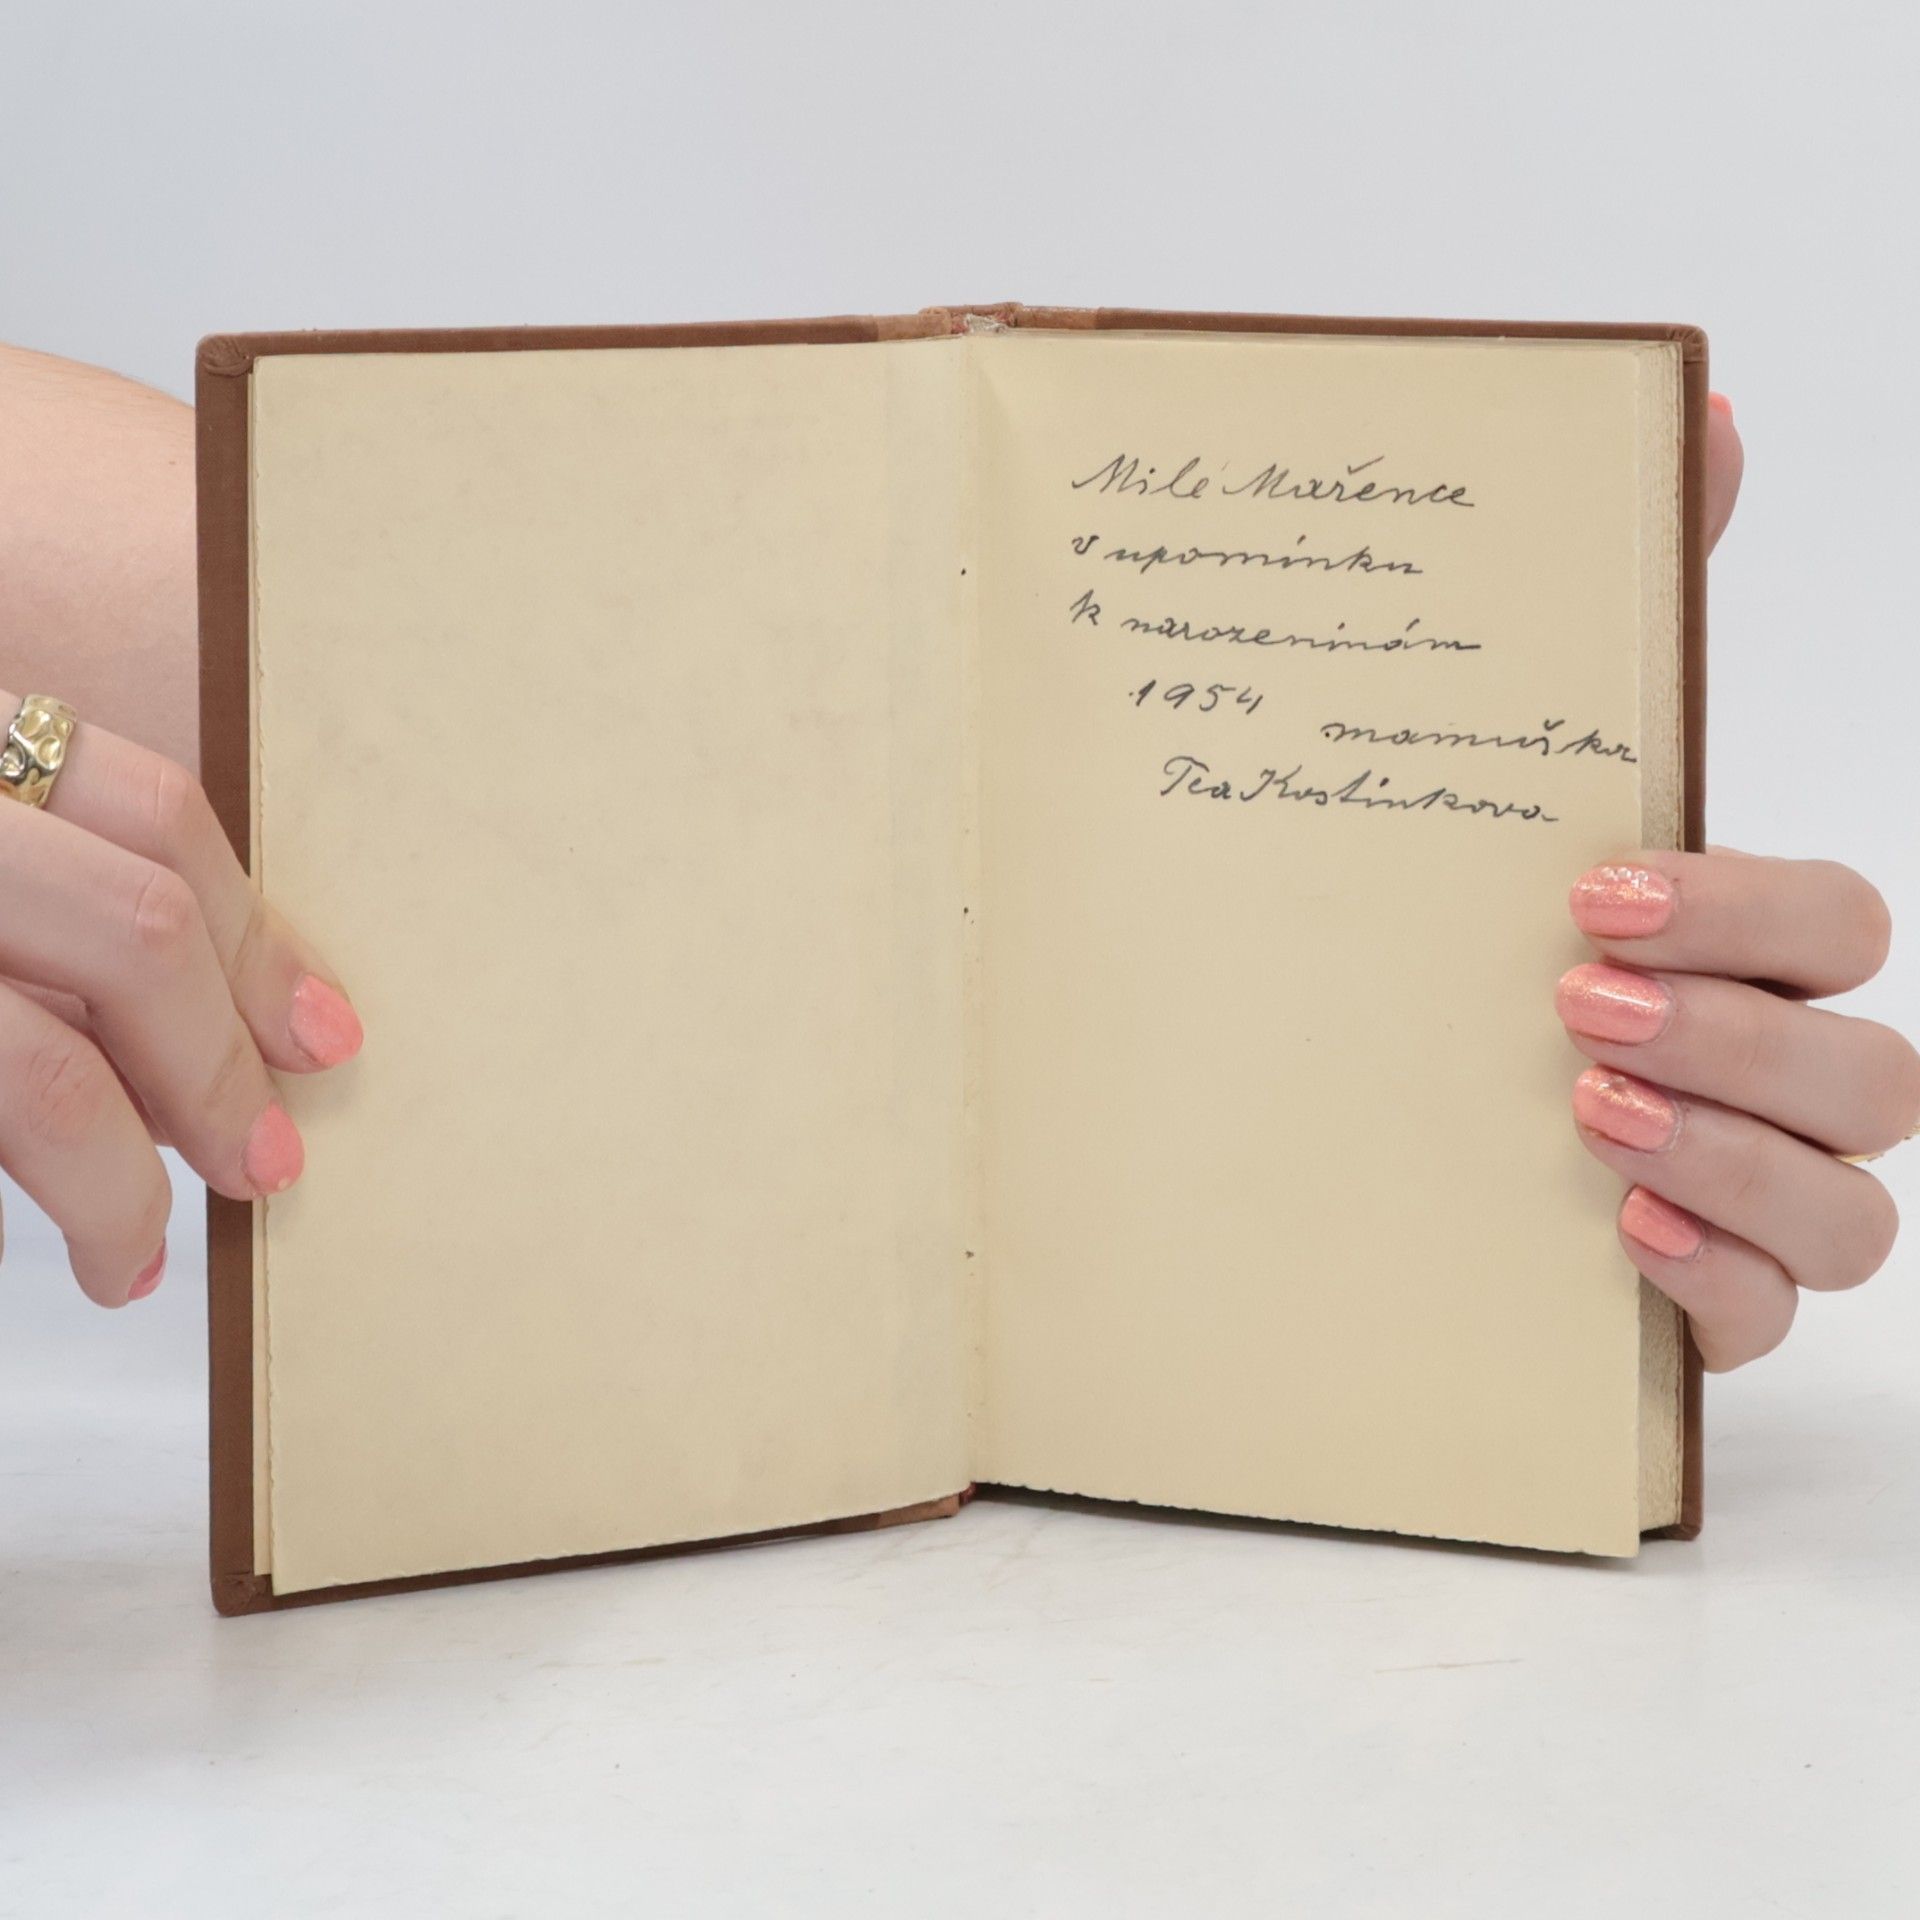 Milé Mařence
v upomínku
k narozeninám
1954
mamuška
Tea Kostinkova